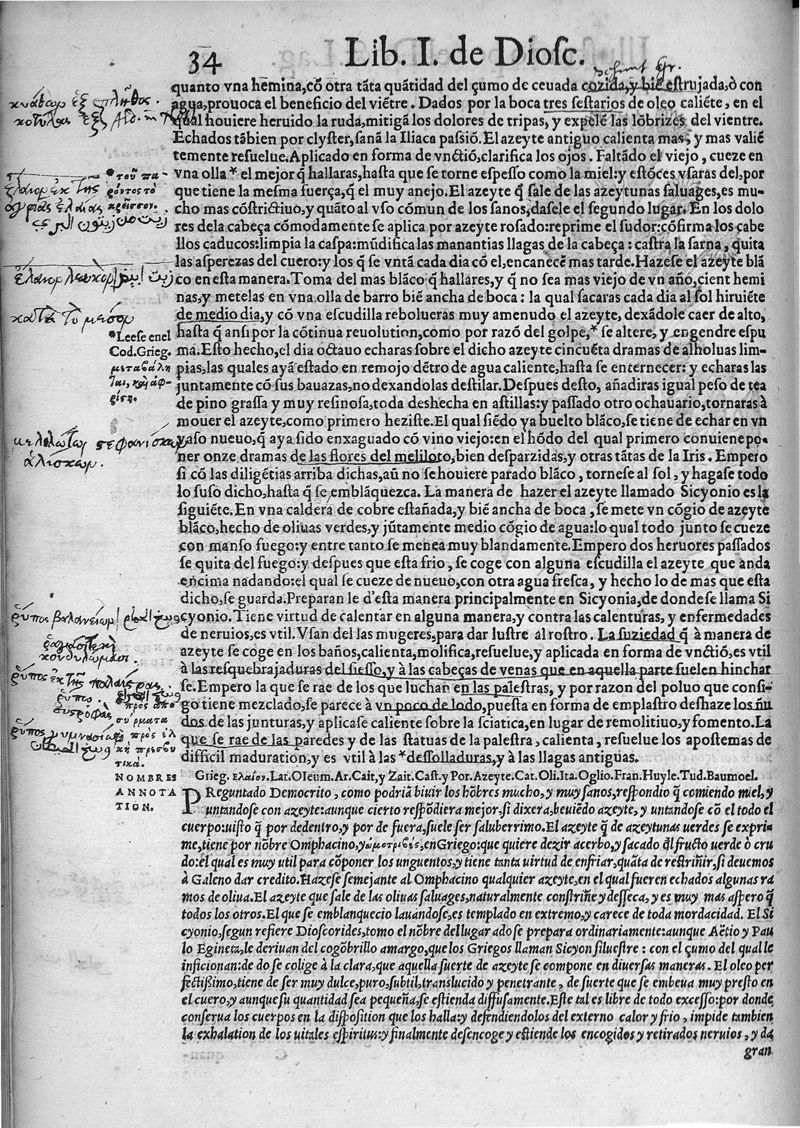 34
Lib. I. de Diosc.
quanto vna hemina, cõ otra tãta quãtidad del çumo de ceuada cozida, y biẽ estrujada, ò con
agua, prouoca el beneficio del viẽtre. Dados por la boca tres sestarios de oleo caliẽte, en el
qual houiere heruido la ruda, mitigã los dolores de tripas, y expelẽ las lõbrizes del vientre.
Echados tãbien por clyster, sanã la Iliaca passiõ. El azeyte antiguo calienta mas, y mas valiẽ
temente resuelue. Aplicado en forma de vnctiõ, clarifica los ojos. Faltãdo el viejo, cueze en
vna olla * el mejor q̃ hallaras, hasta que se torne espesso como la miel: y estõces vsaras del, por
que tiene la mesma fuerça, q̃ el muy anejo. El azeyte q̃ sale de las azeytunas saluages, es mu-
cho mas cõstrictiuo, y quãto al vso cómun de los sanos, dasele el segundo lugar. En los dolo
res dela cabeça cõmodamente se aplica por azeyte rosado: reprime el sudor: cõfirma los cabe
llos caducos: limpia la caspa: mũdifica las manantias llagas de la cabeça: castra la sarna, quita
las asperezas del cuero: y los q̃ se vntã cada dia cõ el, encanecẽ mas tarde. Hazese el azeyte blã
co en esta manera. Toma del mas blãco q̃ hallares, y q̃ no sea mas viejo de vn año, cient hemi
nas, y metelas en vna olla de barro biẽ ancha de boca: la qual sacaras cada dia al sol hiruiẽte
de medio dia, y cõ vna escudilla rebolueras muy amenudo el azeyte, dexãdole caer de alto,
hasta q̃ ansi por la cõtinua reuolution, como por razõ del golpe, * se altere, y engendre espu
ma. Esto hecho, el dia octauo echaras sobre el dicho azeyte cincuẽta dramas de alholuas lim-
pias, las quales ayã estado en remojo dẽtro de agua caliente, hasta se enternecer: y echaras las
juntamente cõ sus bauazas, no dexandolas destilar. Despues desto, añadiras igual peso de tea
de pino grassa y muy resinosa, toda deshecha en astillas: y passado otro ochauario, tornaras à
mouer el azeyte, como primero heziste. El qual siẽdo ya buelto blãco, se tiene de echar en vn
vaso nueuo, q̃ aya sido enxaguado cõ vino viejo: en el hõdo del qual primero conuiene po-
ner onze dramas de las flores del meliloto, bien desparzidas, y otras tãtas de la Iris. Empero
si cõ las diligẽtias arriba dichas, aũ no se houiere parado blãco, tornese al sol, y hagase todo
lo suso dicho, hasta q̃ se emblãquezca. La manera de hazer el azeyte llamado Sicyonio es la
siguiẽte. En vna caldera de cobre estañada, y biẽ ancha de boca, se mete vn cõgio de azeyte
blãco, hecho de oliuas verdes, y jũtamente medio cõgio de agua: lo qual todo junto se cueze
con manso fuego: y entre tanto se menea muy blandamente. Empero dos heruores passados
se quita del fuego: y despues que esta frio, se coge con alguna escudilla el azeyte que anda
encima nadando: el qual se cueze de nueuo, con otra agua fresca, y hecho lo de mas que esta
dicho, se guarda. Preparan le d'esta manera principalmente en Sicyonia, de donde se llama Si
cyonio. Tiene virtud de calentar en alguna manera, y contra las calenturas, y enfermedades
de neruios, es vtil. Vsan del las mugeres, para dar lustre al rostro. La suziedad q̃ à manera de
azeyte se coge en los baños, calienta, molifica, resuelue, y aplicada en forma de vnctiõ, es vtil
à las resquebrajaduras del siesso, y à las cabeças de venas que en aquella parte suelen hinchar
se. Empero la que se rae de los que luchan en las palestras, y por razon del poluo que consi-
go tiene mezclado, se parece à vn poco de lodo, puesta en forma de emplastro deshaze los ñu
dos de las junturas, y aplicase caliente sobre la sciatica, en lugar de remolitiuo, y fomento. La
que se rae de las paredes y de las statuas de la palestra, calienta, resuelue los apostemas de
difficil maduration, y es vtil à las * dessolladuras, y à las llagas antiguas.
* τοῦ πα-
ρόντος τὸ
κρεῖσσον.
* Leese en el
Cod. Grieg.
μεταβάλῃ
NOMBRES
Grieg. ἔλαιον. Lat. Oleum. Ar. Cait, y Zait. Cast. y Por. Azeyte. Cat. Oli. Ita. Oglio. Fran. Huyle. Tud. Baumoel.
ANNOTA
TION.
PReguntado Democrito, como podriã biuir los hõbres mucho, y muy sanos, respondio q̃ comiendo miel, y
untandose con azeyte: aunque cierto respõdiera mejor, si dixera, beuiẽdo azeyte, y untandose cõ el todo el
cuerpo: uisto q̃ por dedentro, y por de fuera, suele ser saluberrimo. El azeyte q̃ de azeytunas uerdes se exprì-
me, tiene por nõbre Omphacino, y ὠμοτριβές, en Griego: que quiere dezir acerbo, y sacado dl fructo uerde ò cru
do: el qual es muy util para cõponer los unguentos, y tiene tanta uirtud de enfriar, quãta de restriñir, si deuemos
à Galeno dar credito. Hazese semejante al Omphacino qualquier azeyte, en el qual fueren echados algunas ra
mos de oliua. El azeyte que sale de las oliuas saluages, naturalmente constriñe y desseca, y es muy mas aspero q̃
todos los otros. El que se emblanquecio lauandose, es templado en extremo, y carece de toda mordacidad. El Si
cyonio, segun refiere Dioscorides, tomo el nõbre del lugar ado se prepara ordinariamente: aunque Aëtio y Pau
lo Egineta, le deriuan del cogõbrillo amargo, que los Griegos llaman Sicyon siluestre: con el çumo del qual le
inficionan: de do se colige à la clara, que aquella suerte de azeyte se compone en diuersas maneras. El oleo per
fectissimo, tiene de ser muy dulce, puro, subtil, translucido y penetrante, de suerte que se embeua muy presto en
el cuero, y aunque su quantidad sea pequeña, se estienda diffusamente. Este tal es libre de todo excesso: por donde
conserua los cuerpos en la disposition que los halla: y defendiendolos del externo calor y frio, impide tambien
la exhalation de los uitales espiritus: y finalmente desencoge y estiende los encogidos y retirados neruios, y da
gran